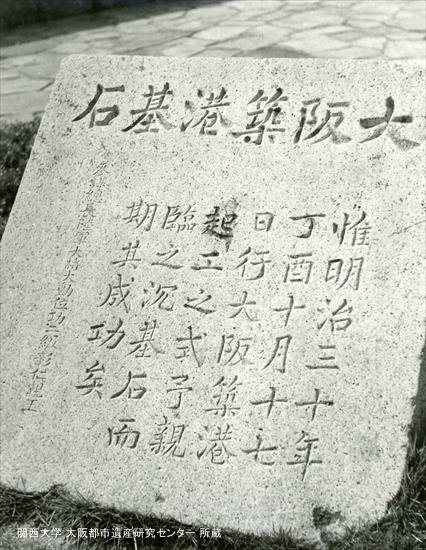 大阪築港基石
惟明治三十年
丁酉十月十七
日行大阪築港
起工之式予親
臨之沉基石而
期其成功矣
参謀総長陸軍大将大勲位功二級彰仁親王
関西大学 大阪都市遺産研究センター 所蔵